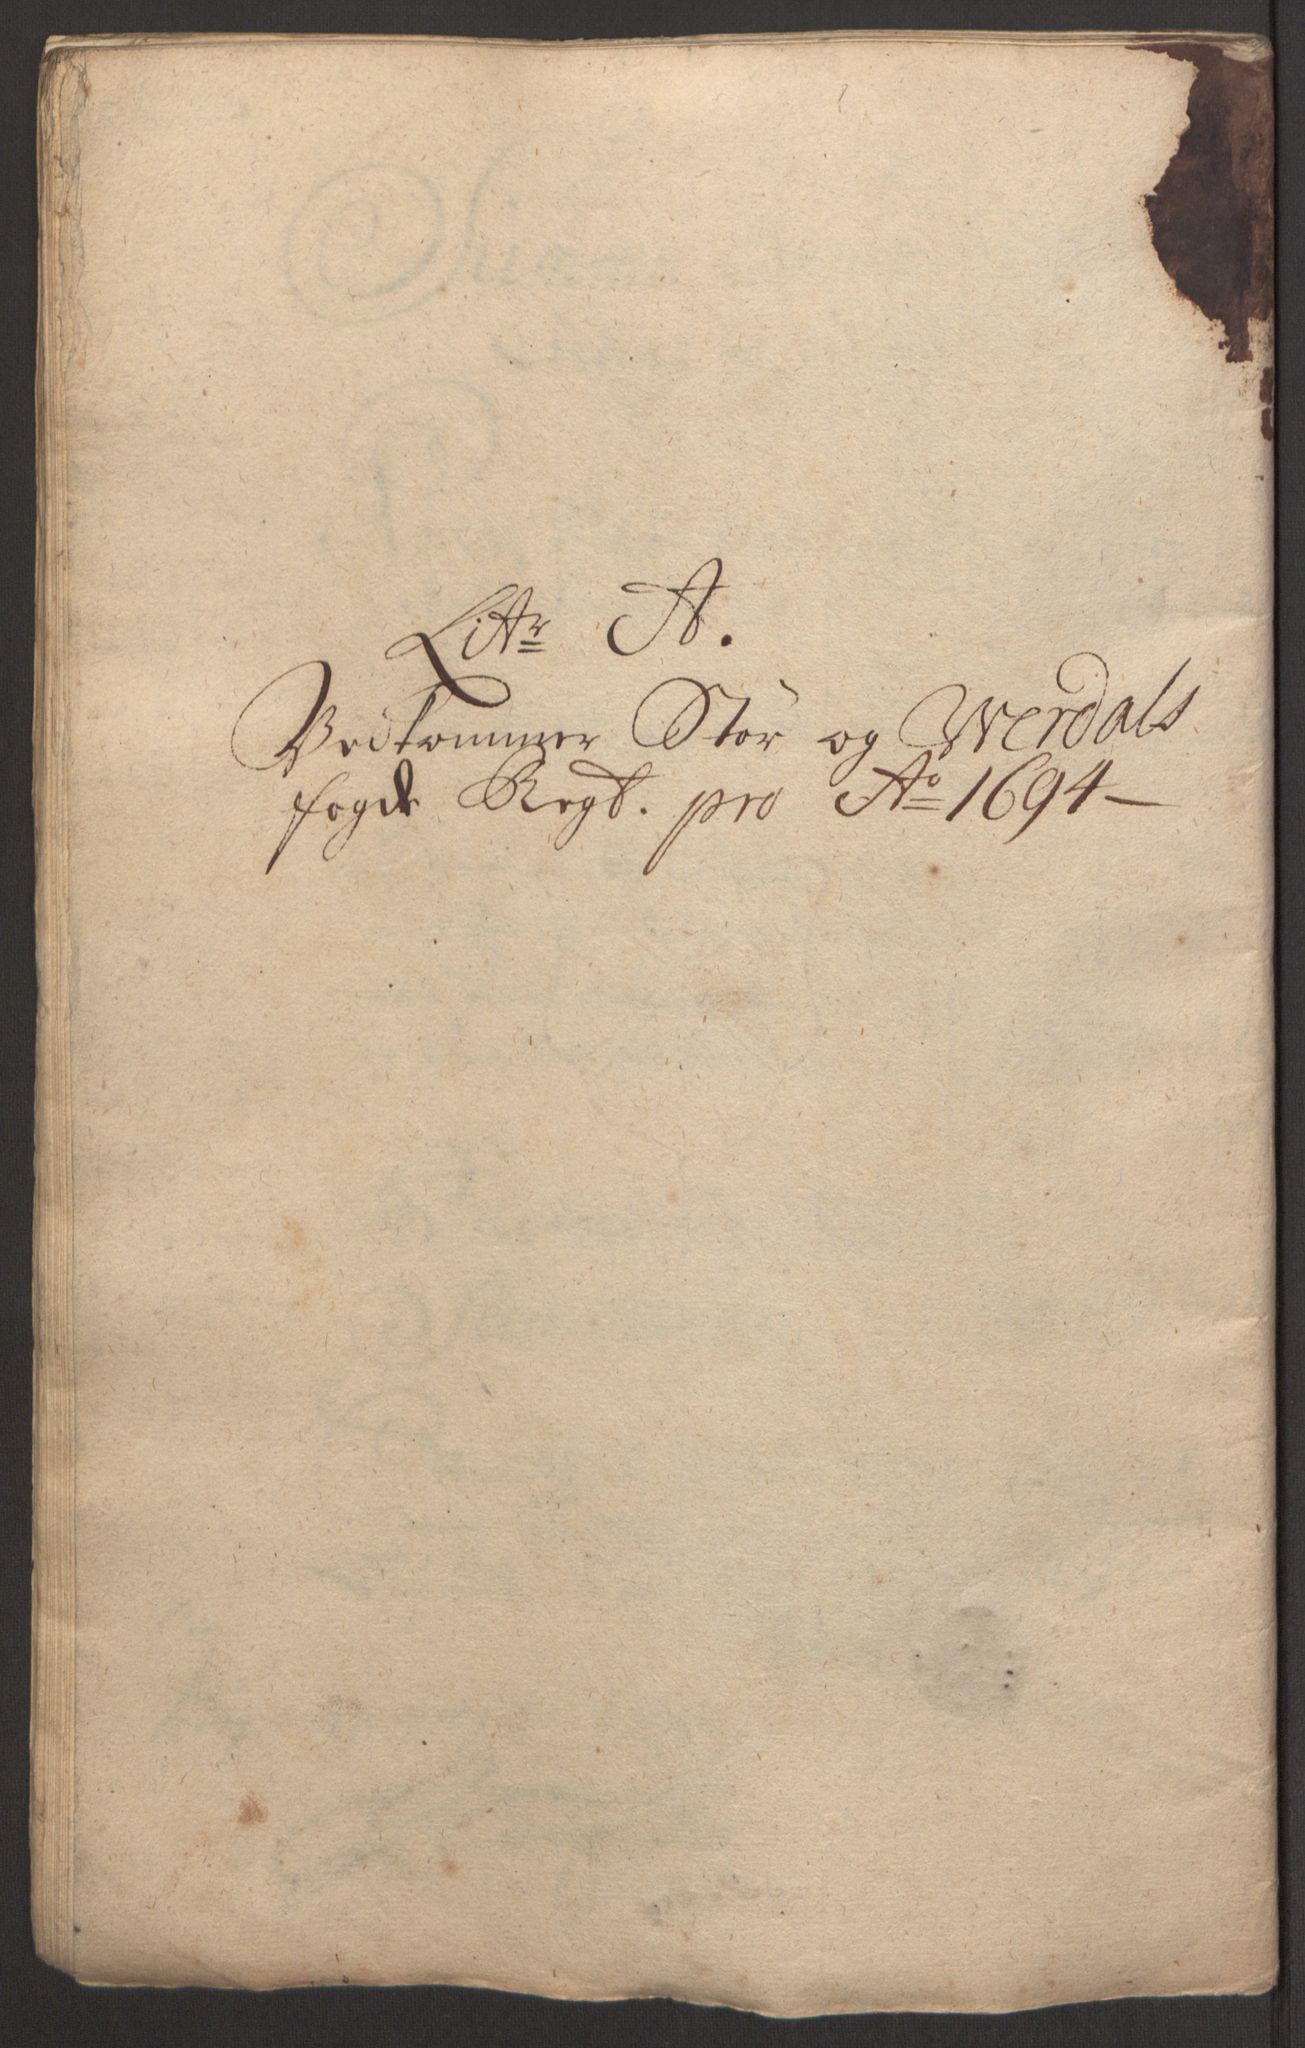 Litr A.
Vedkommer Stør og Werdals
fogde Regt. pro Ao 1694